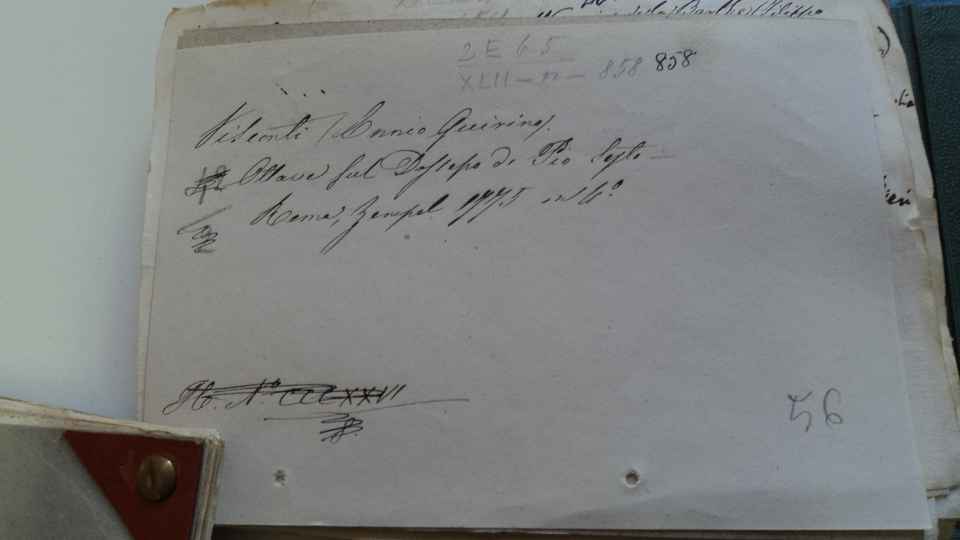 2 E 6 5
XLII - n - 858 858
Visconti (Ennio Quirino).
Ottave sul Possesso di Pio Sesto
Roma, Zempel 1775 in 4º
N.º CCCXXVI
56